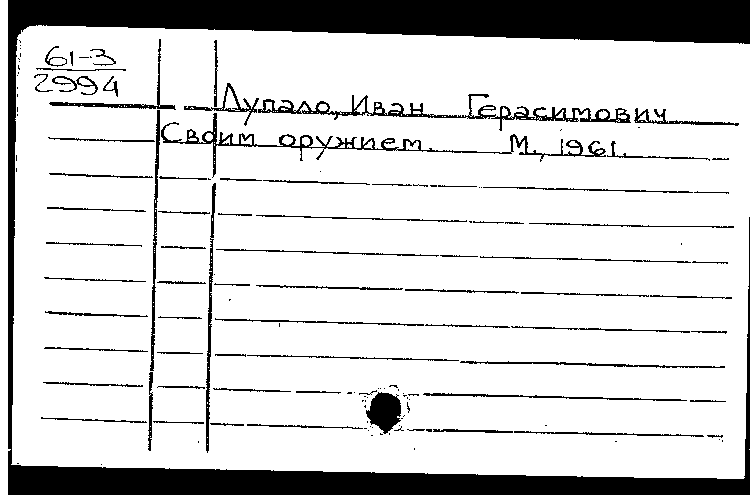 61-3
2994
Лупало, Иван Герасимович
Своим оружием. М., 1961.